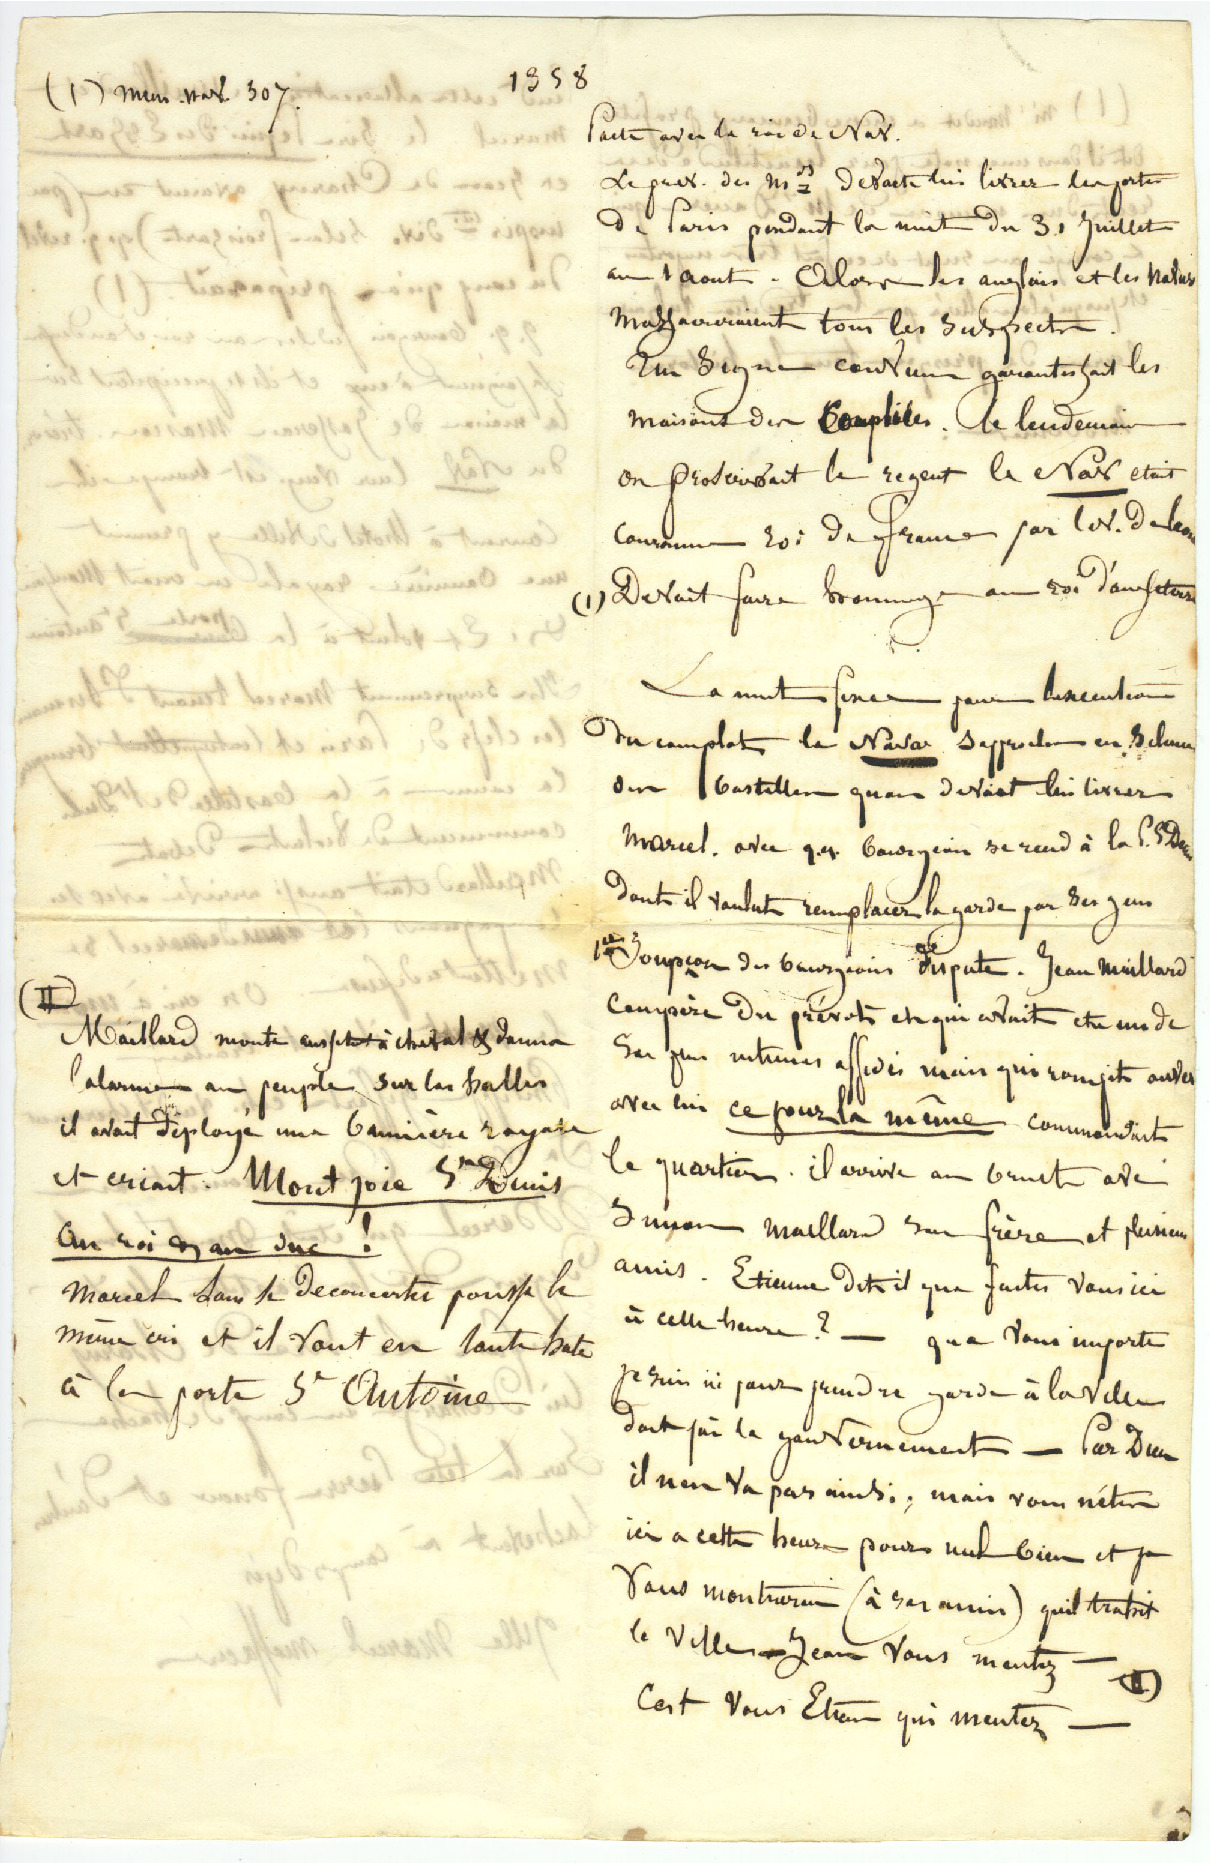 1358
(1) mem. nav. 307.
Pacte avec le roi de Nav.
Le prev. des mds devait lui livrer les portes
de Paris pendant la nuit du 31 Juillet
au 1 aout. Alors les anglais et les Navar
massacreraient tous les suspects.
Un Signe convenu garantissait les
maisons des complices. le lendemain
on proscrivait le regent le Nav etait
couronné roi de france par l'ev. de laon
(1) Devait faire hommage au roi d'angleterre
La nuit fixée pour l'execution
du complot le Navar s'approche en silence
des bastilles quon devait lui livrer
Marcel. avec q.q. bourgeois se rend à la P. St Denis
dont il voulut remplacer la garde par ses gens
Soupçon des bourgeois dispute. Jean Maillard
compère du prévôt et qui avait été un de
ses plus intimes affidés mais qui rompit
avec lui ce jour la même commandait
le quartier. il arrive au bruit avec
Simon Maillard son frère et plusieurs
amis. Etienne dit il que faites vous ici
à cette heure? — que vous importe
je suis ici pour prendre garde à la ville
dont j'ai le gouvernement — Par Dieu
il n'en va pas ainsi; mais vous n'êtes
ici a cette heure pour nul bien et je
vous montrerai (à ses amis) quil trahit
la ville — Jean vous mentez —
(II)
C'est vous Etienne qui mentez —
(II)
Maillard monte à cheval & donna
l'alarme au peuple sur les halles
il avait déployé une bannière royale
et criant. Mont joie St Denis
au roi & au duc!
Marcel se decouvert pousse le
même cri et il vont en toute hate
à la porte St Antoine